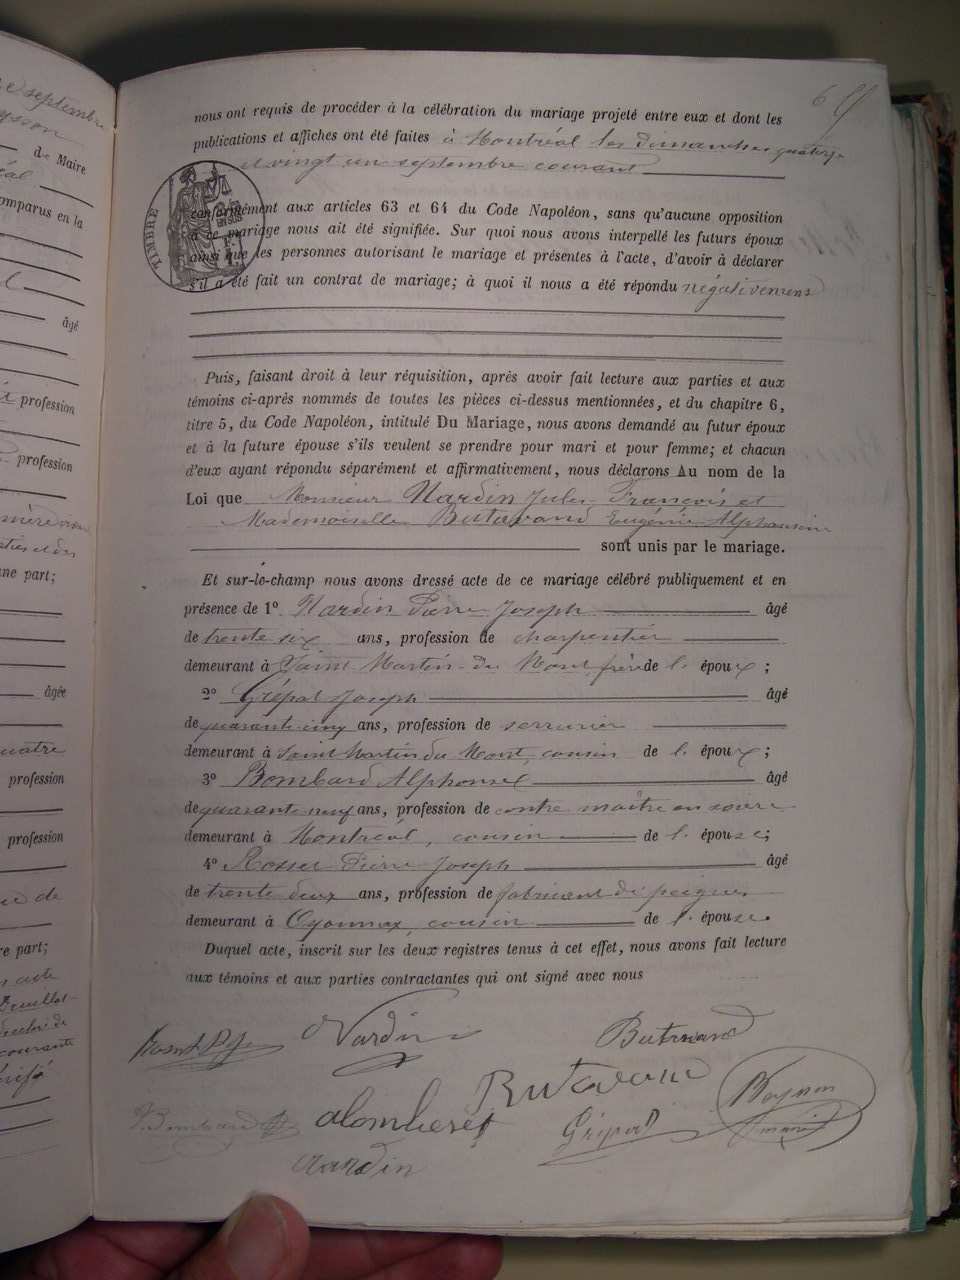 nous ont requis de procéder à la célébration du mariage projeté entre eux et dont les
publications et affiches ont été faites à Montréal les dimanches quatorze
et vingt un septembre courant
TIMBRE
conformément aux articles 63 et 64 du Code Napoléon, sans qu'aucune opposition
à ce mariage nous ait été signifiée. Sur quoi nous avons interpellé les futurs époux
ainsi que les personnes autorisant le mariage et présentes à l'acte, d'avoir à déclarer
s'il a été fait un contrat de mariage; à quoi il nous a été répondu négativement
Puis, faisant droit à leur réquisition, après avoir fait lecture aux parties et aux
témoins ci-après nommés de toutes les pièces ci-dessus mentionnées, et du chapitre 6,
titre 5, du Code Napoléon, intitulé Du Mariage, nous avons demandé au futur époux
et à la future épouse s'ils veulent se prendre pour mari et pour femme; et chacun
d'eux ayant répondu séparément et affirmativement, nous déclarons Au nom de la
Loi que Monsieur Nardin Jules-François et
Mademoiselle Butavand Eugénie Alphonsine
sont unis par le mariage.
Et sur-le-champ nous avons dressé acte de ce mariage célébré publiquement et en
présence de 1° Nardin Pierre Joseph âgé
de trente six ans, profession de charpentier
demeurant à Saint Martin-du Mont, frère de l'époux;
2° Joseph âgé
de quarante-cinq ans, profession de serrurier
demeurant à Saint Martin du Mont, cousin de l'époux;
3° Bombard Alphonse âgé
de quarante neuf ans, profession de contre maître en soierie
demeurant à Montréal, cousin de l'épouse;
4° Pierre Joseph âgé
de trente deux ans, profession de fabricant de peignes
demeurant à Oyonnax, cousin de l'épouse.
Duquel acte, inscrit sur les deux registres tenus à cet effet, nous avons fait lecture
aux témoins et aux parties contractantes qui ont signé avec nous
Nardin Butavand
Butavand
Bombard Peysson
maire
Nardin
de Maire
comparus en la
âgé
profession
profession
une part;
âgée
quatre
profession
profession
re part;
acte
courante